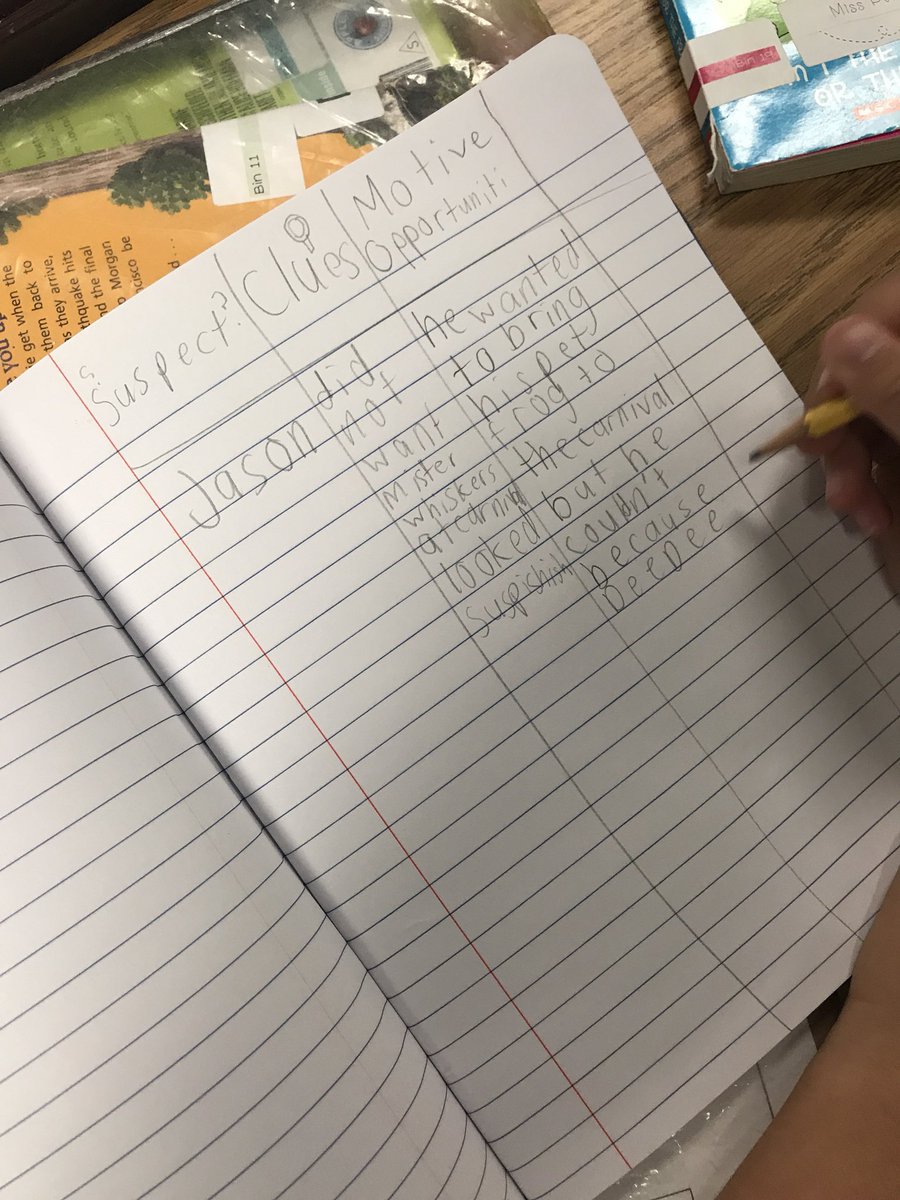 Suspect?
Clues
Motive
opportuniti
Jason
did
not
want
Mister
whiskers
at carnival
looked
he wanted
to bring
his pet
frog to
the carnival
but he
coudn't
because
DeeDee
Bin 11
YOU UP
get when the
them back to
as they arrive,
thquake hits
nd the final
Morgan
cisco be
Miss
Bin 19
OR TH
S